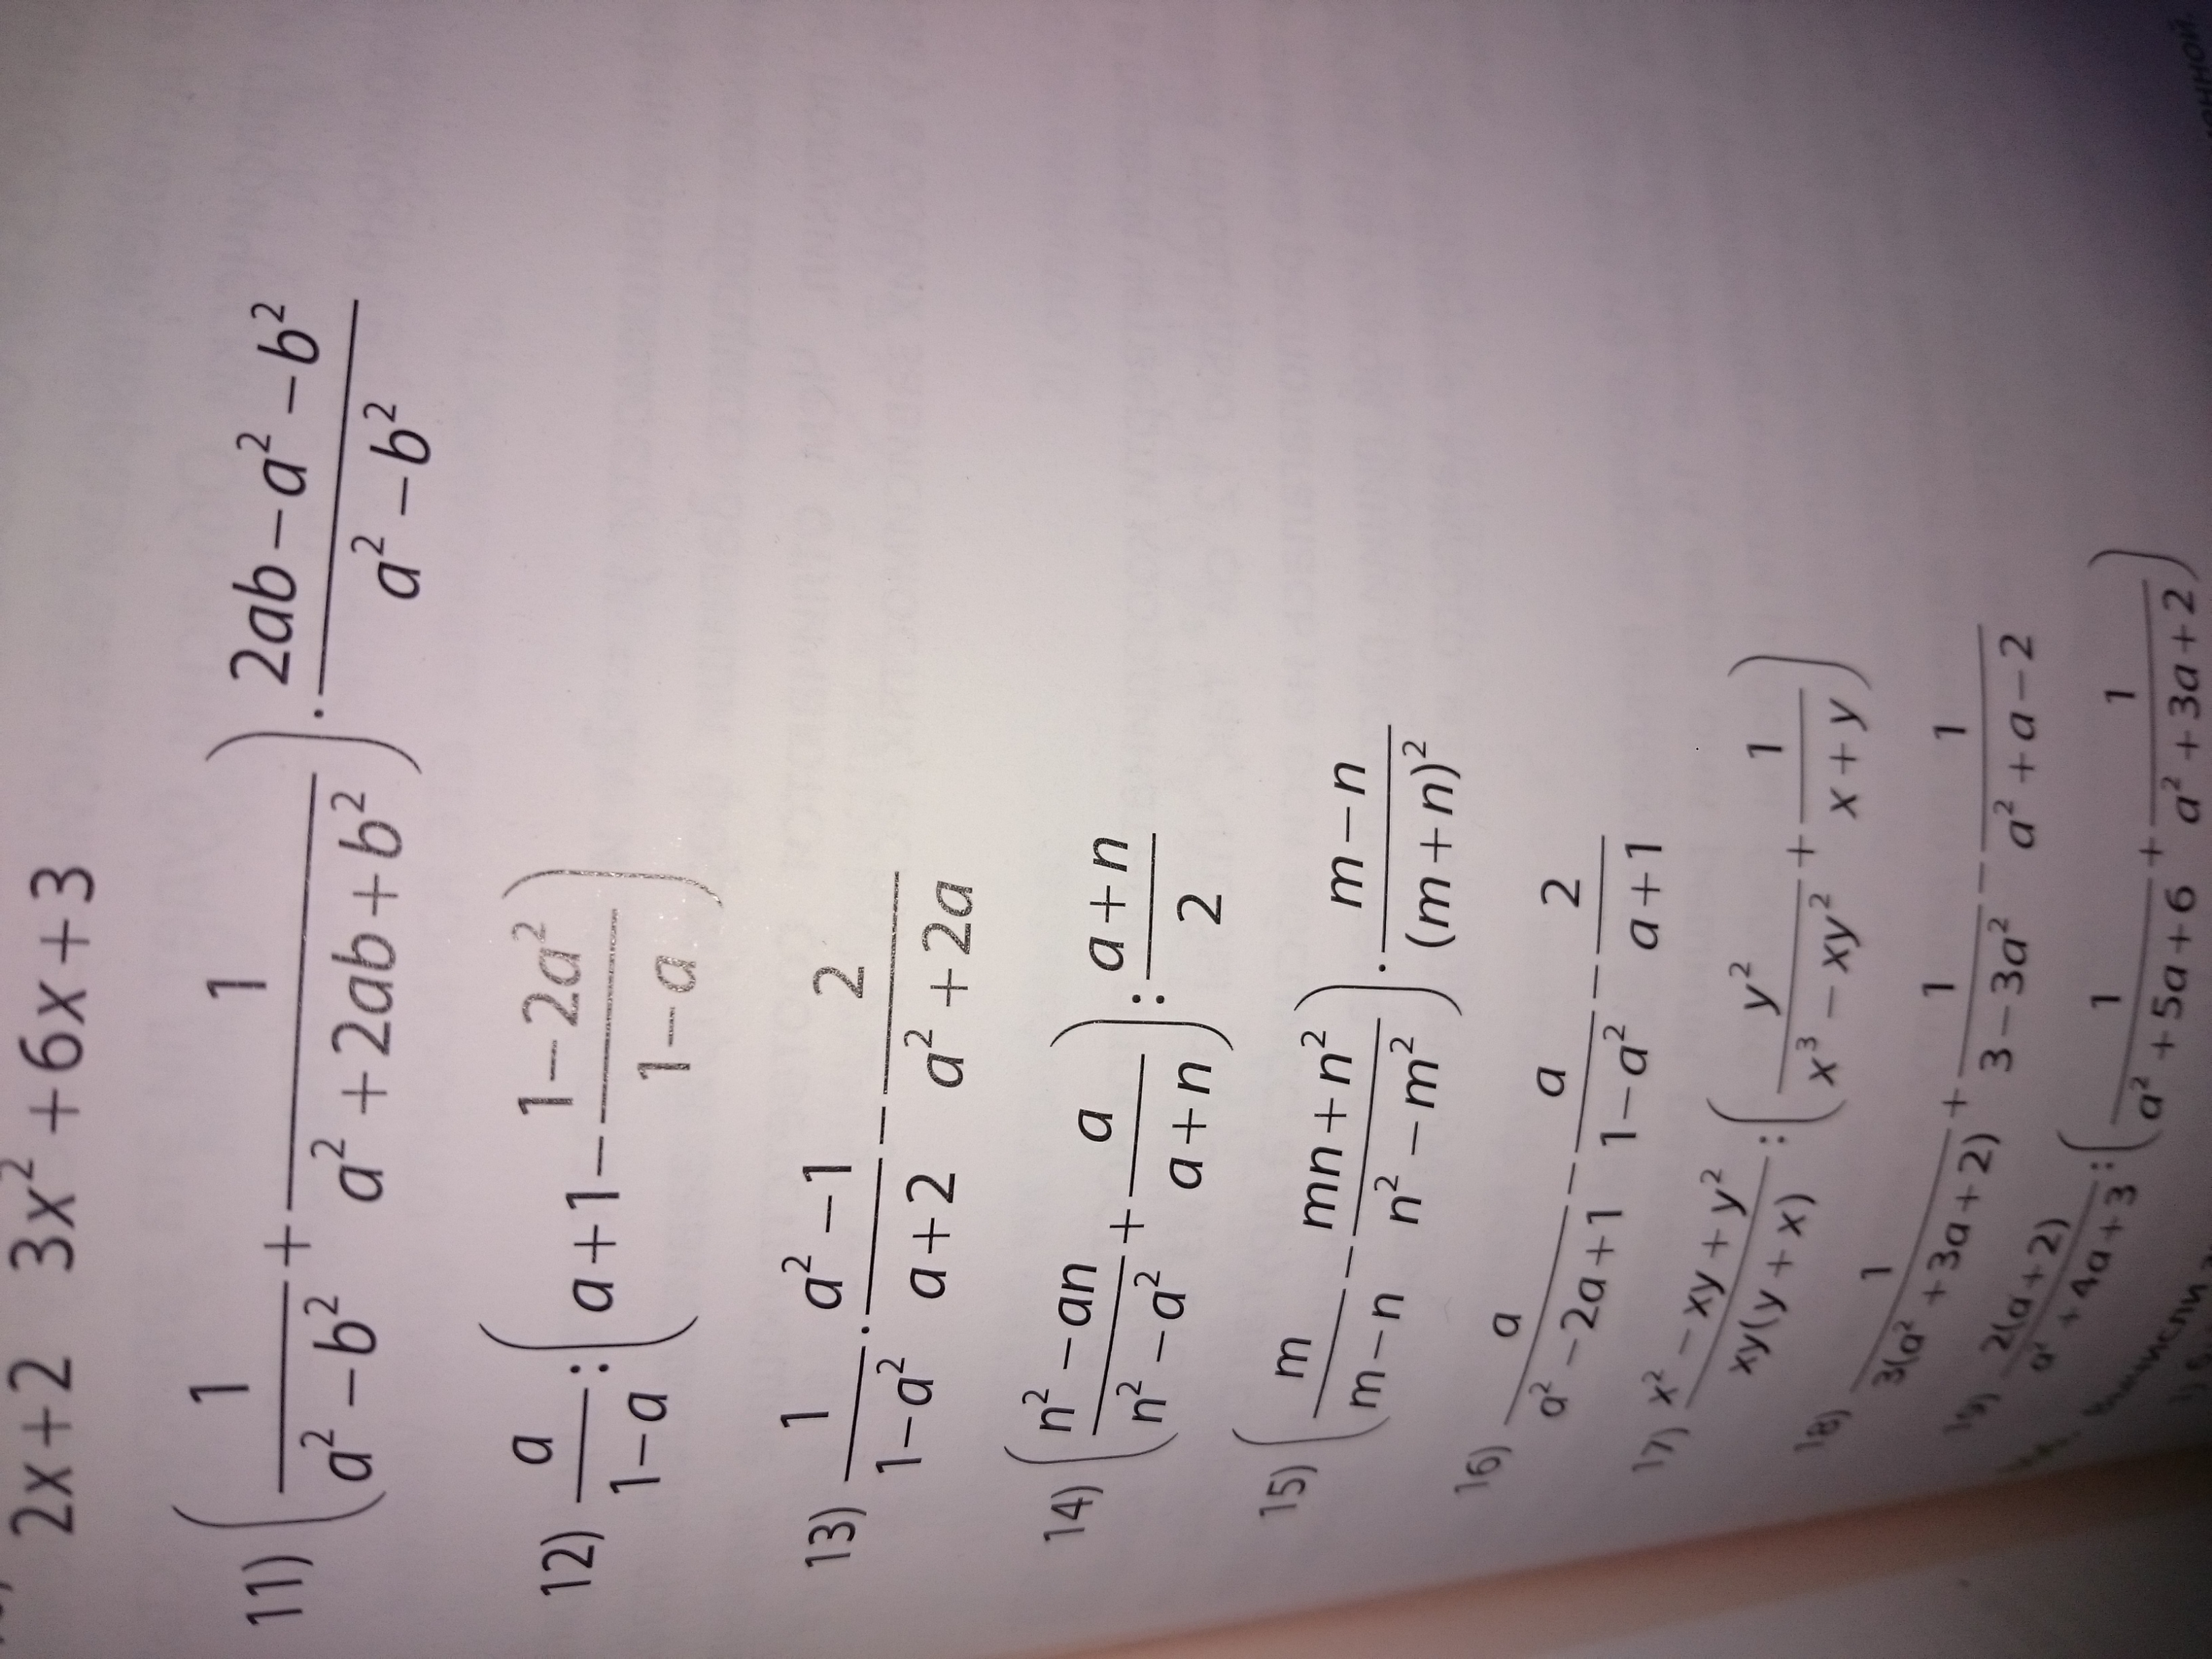 2x+2 3x²+6x+3
11) (1/(a²−b²) + 1/(a²+2ab+b²)) · (2ab−a²−b²)/(a²−b²)
12) a/(1−a) : (a+1−(1−2a²)/(1−a))
13) 1/(1−a²) · (a²−1)/(a+2) − 2/(a²+2a)
14) ((n²−an)/(n²−a²) + a/(a+n)) : (a+n)/2
15) (m/(m−n) − (mn+n²)/(n²−m²)) · (m−n)/(m+n)²
16) a/(a²−2a+1) − a/(1−a²) − 2/(a+1)
17) (x²−xy+y²)/(xy(y+x)) : (y²/(x³−xy²) + 1/(x+y))
18) 1/(3(a²+3a+2)) + 1/(3−3a²) − 1/(a²+a−2)
19) 2(a+2)/(a²+4a+3) : (1/(a²+5a+6) + 1/(a²+3a+2))